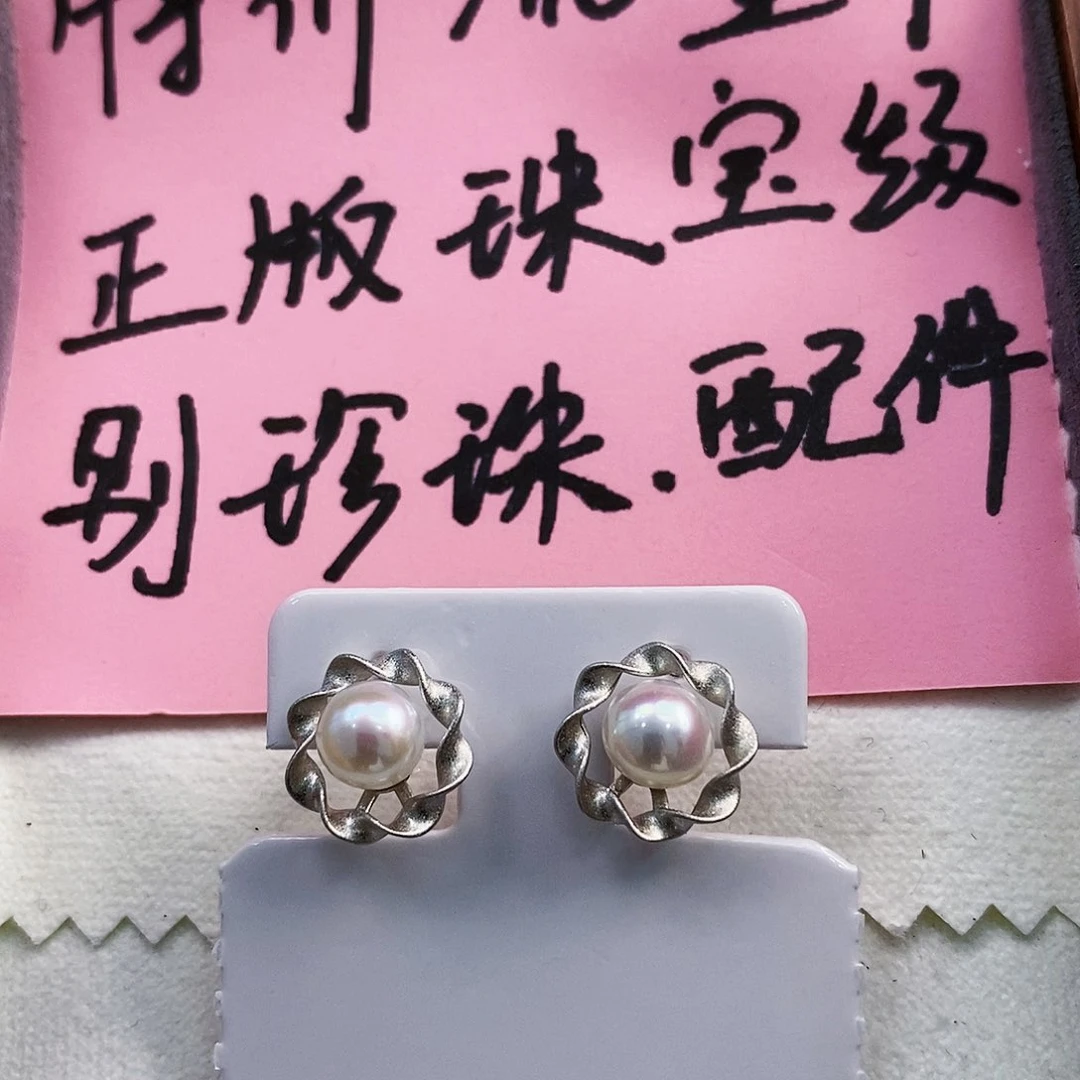 特价
正版珠宝级
别珍珠.配件